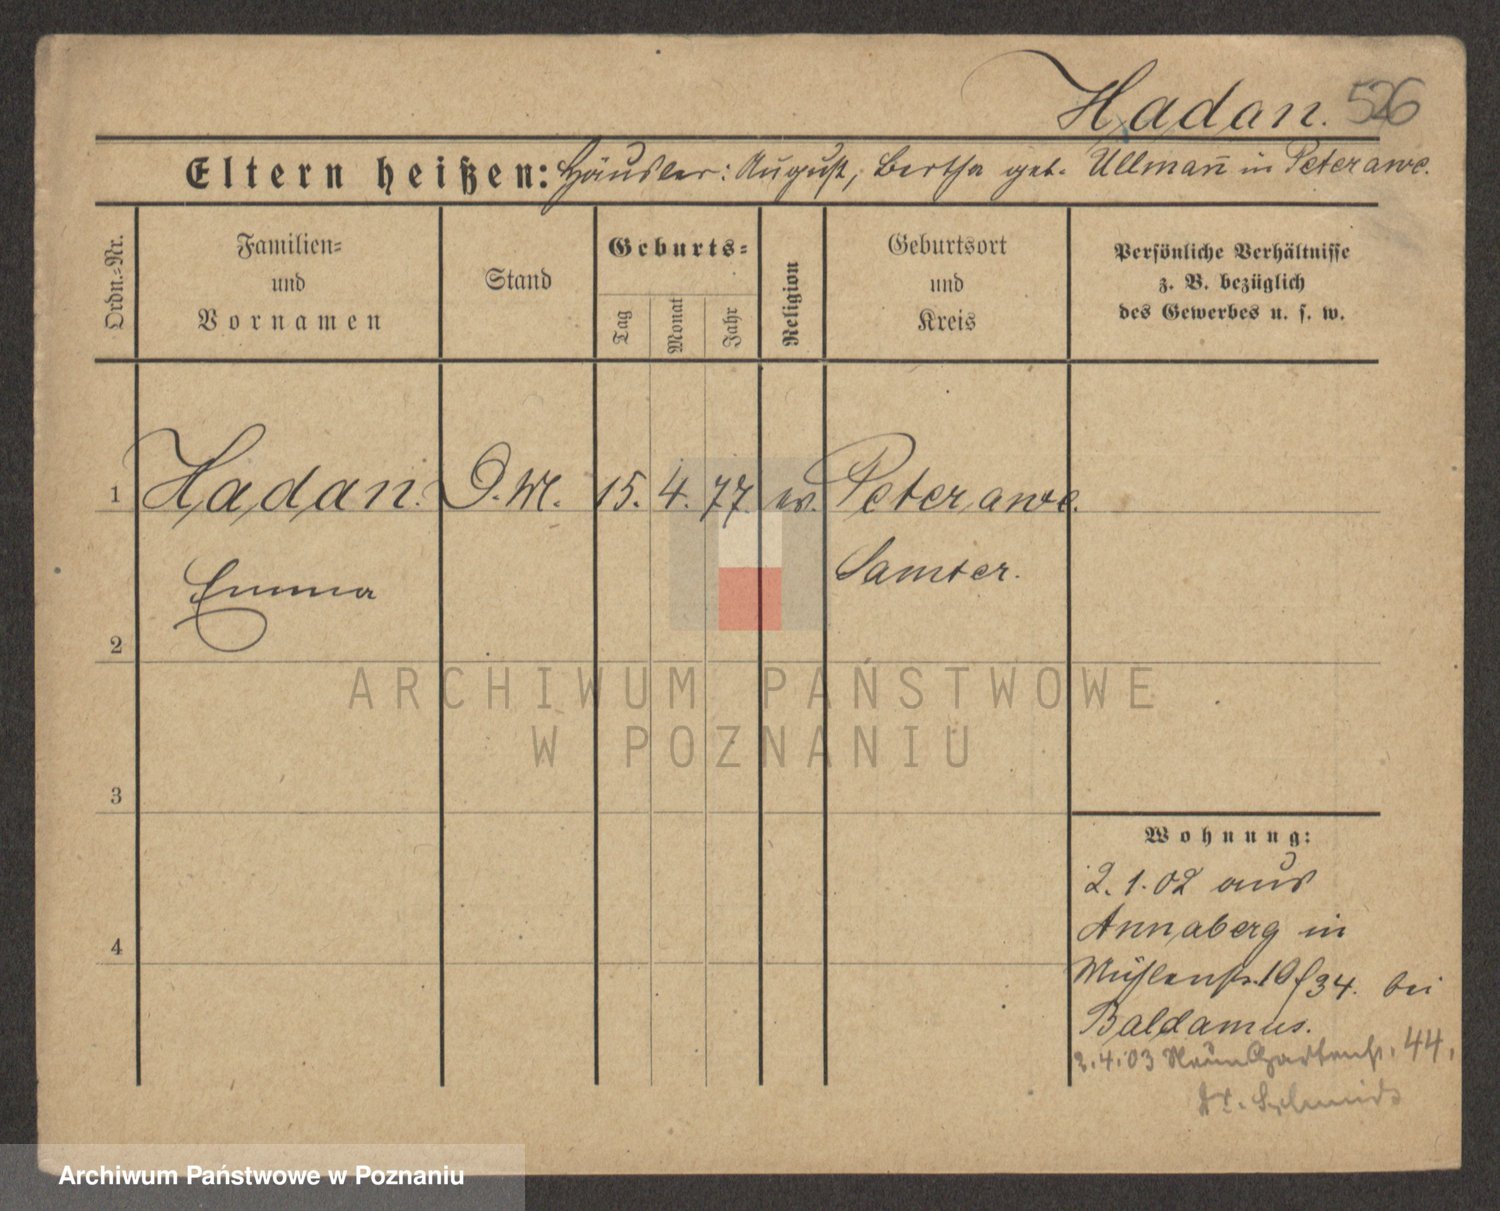 Hadan. 526
Eltern heißen: Häusler: August, Bertha geb. Ullmañ in Peterawe.
Ordn.-Nr.
Familien-
und
Vornamen
Stand
Geburts-
Tag
Monat
Jahr
Religion
Geburtsort
und
Kreis
Persönliche Verhältnisse
z. B. bezüglich
des Gewerbes u. s. w.
1 Hadan. D. M. 15. 4. 77. ev. Peterawe.
Emma
Samter.
2
3
4
ARCHIWUM PAŃSTWOWE
W POZNANIU
Wohnung:
2.1.02 aus
Annaberg in
Mühlenstr. 19/34. bei
Baldamus.
2.4.03 Gartenstr. 44,
Dr. Schmidt
Archiwum Państwowe w Poznaniu